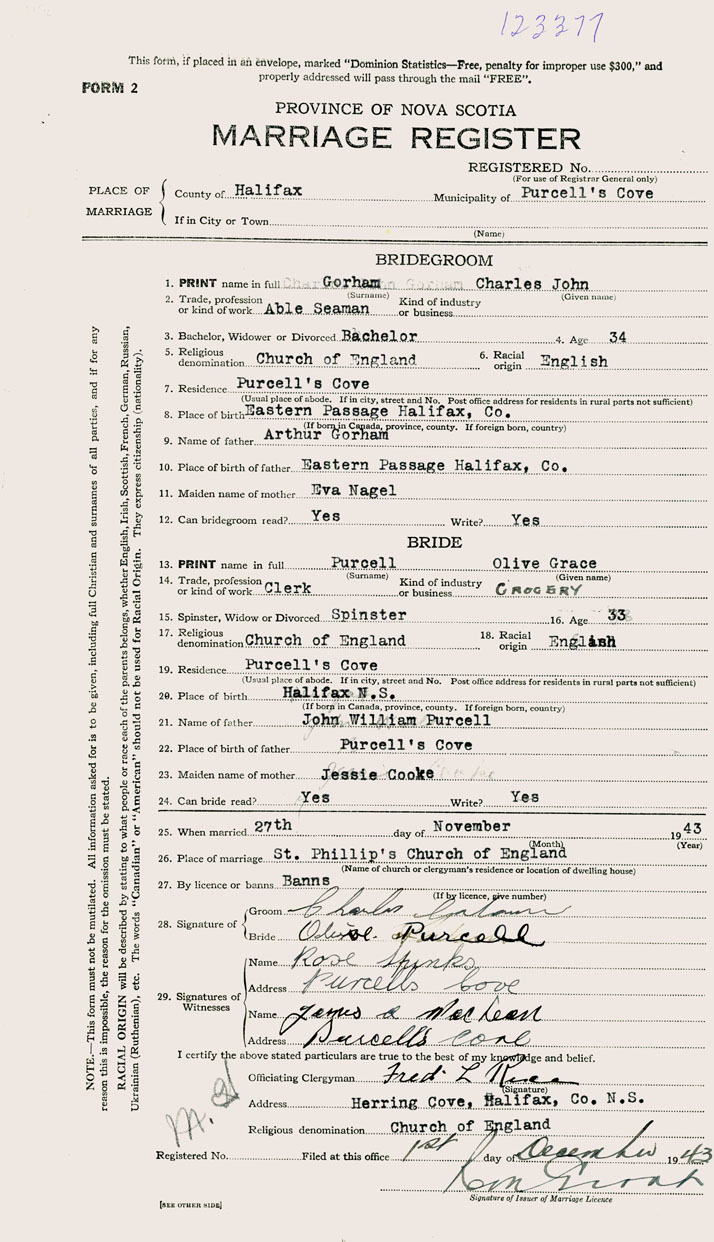 123377
This form, if placed in an envelope, marked “Dominion Statistics—Free, penalty for improper use $300,” and
properly addressed will pass through the mail “FREE”.
FORM 2
PROVINCE OF NOVA SCOTIA
MARRIAGE REGISTER
REGISTERED No.
(For use of Registrar General only)
PLACE OF MARRIAGE
County of Halifax Municipality of Purcell's Cove
If in City or Town
(Name)
BRIDEGROOM
1. PRINT name in full Gorham Charles John
(Surname) (Given name)
2. Trade, profession or kind of work Able Seaman Kind of industry or business
3. Bachelor, Widower or Divorced Bachelor 4. Age 34
5. Religious denomination Church of England 6. Racial origin English
7. Residence Purcell's Cove
(Usual place of abode. If in city, street and No. Post office address for residents in rural parts not sufficient)
8. Place of birth Eastern Passage Halifax, Co.
(If born in Canada, province, county. If foreign born, country)
9. Name of father Arthur Gorham
10. Place of birth of father Eastern Passage Halifax, Co.
11. Maiden name of mother Eva Nagel
12. Can bridegroom read? Yes Write? Yes
BRIDE
13. PRINT name in full Purcell Olive Grace
(Surname) (Given name)
14. Trade, profession or kind of work Clerk Kind of industry or business GROCERY
15. Spinster, Widow or Divorced Spinster 16. Age 33
17. Religious denomination Church of England 18. Racial origin English
19. Residence Purcell's Cove
(Usual place of abode. If in city, street and No. Post office address for residents in rural parts not sufficient)
20. Place of birth Halifax N.S.
(If born in Canada, province, county. If foreign born, country)
21. Name of father John William Purcell
22. Place of birth of father Purcell's Cove
23. Maiden name of mother Jessie Cooke
24. Can bride read? Yes Write? Yes
25. When married 27th day of November 1943
(Month) (Year)
26. Place of marriage St. Phillip's Church of England
(Name of church or clergyman's residence or location of dwelling house)
27. By licence or banns Banns
(If by licence, give number)
28. Signature of
Groom Charles Gorham
Bride Olive Purcell
29. Signatures of Witnesses
Name Rose Spinks
Address Purcells Cove
Name James a MacLean
Address Purcell's Cove
I certify the above stated particulars are true to the best of my knowledge and belief.
Officiating Clergyman Fred L
(Signature)
Address Herring Cove, Halifax, Co. N.S.
Religious denomination Church of England
Registered No. Filed at this office 1st day of December 1943
Signature of Issuer of Marriage Licence
[SEE OTHER SIDE]
NOTE.—This form must not be mutilated. All information asked for is to be given, including full Christian and surnames of all parties, and if for any
reason this is impossible, the reason for the omission must be stated.
RACIAL ORIGIN will be described by stating to what people or race each of the parents belongs, whether English, Irish, Scottish, French, German, Russian,
Ukrainian (Ruthenian), etc. The words “Canadian” or “American” should not be used for Racial Origin. They express citizenship (nationality).